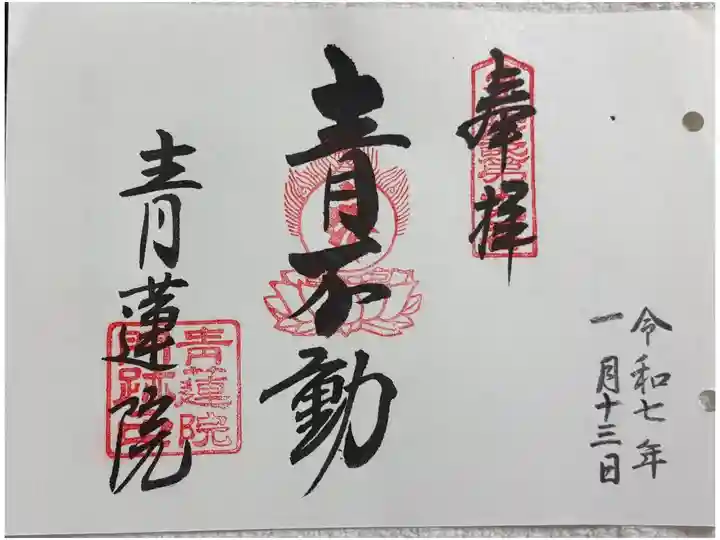 奉拝
令和七年
一月十三日
青不動
青蓮院
青蓮院
門跡印